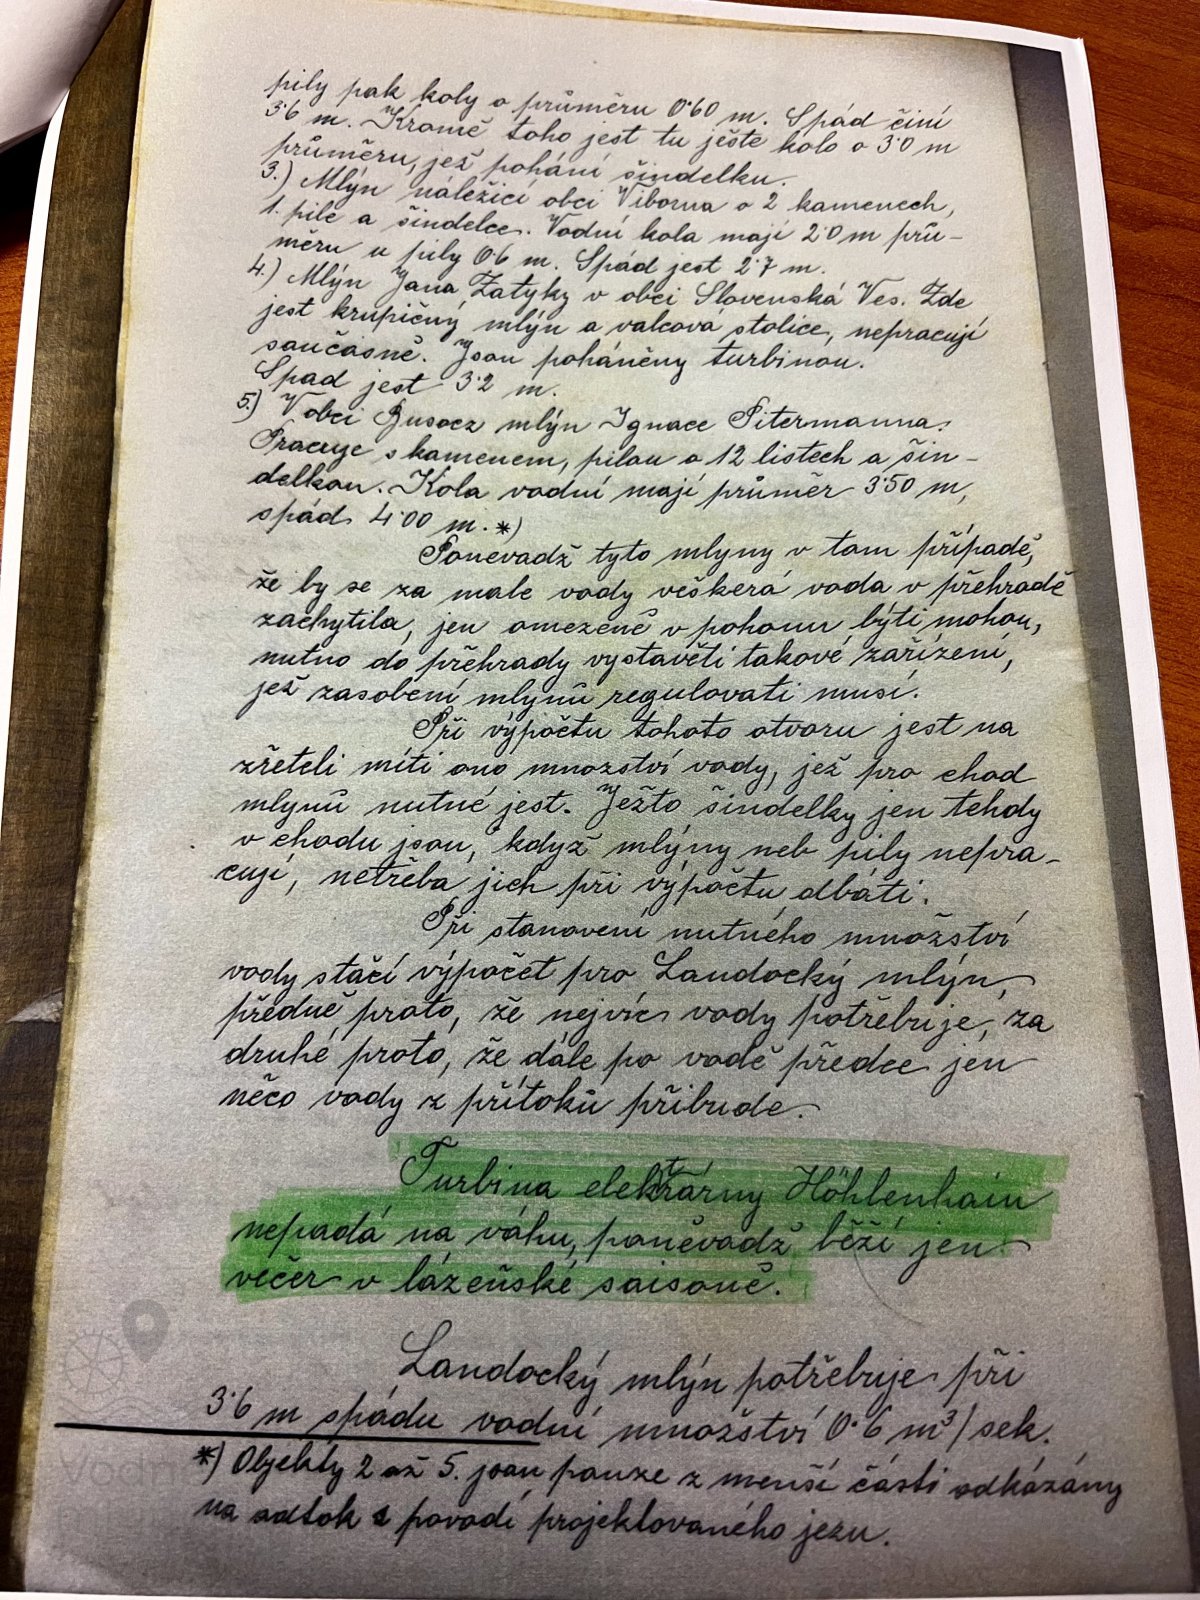 pily pak koly o průměru 0·60 m. Spád činí
3·6 m. Kromě toho jest tu ješte kolo o 3·0 m
průměru, jež pohání šindelku.
3.) Mlýn náležící obci Viborna o 2 kamenech,
1. pile a šindelce. Vodní kola mají 2·0 m prů-
měru u pily 0·6 m. Spád jest 2·7 m.
4.) Mlýn Jana Zatyky v obci Slovenská Ves. Zde
jest krupičný mlýn a valcová stolice, nepracují
současně. Jsou poháněny turbinou.
Spad jest 3·2 m.
5.) V obci Busocz mlýn Ignace Pitermanna.
Pracuje s kamenem, pilou o 12 listech a šin-
delkou. Kola vodní mají průměr 3·50 m,
spád 4·00 m. *)
Poněvadž tyto mlyny v tom případě,
že by se za male vody veškerá voda v přehradě
zachytila, jen omezeně v pohonu býti mohou,
nutno do přehrady vystavěti takové zařízení,
jež zasobení mlýnů regulovati musí.
Při výpočtu tohoto otvoru jest na
zřeteli míti ono množství vody, jež pro chod
mlynů nutné jest. Ježto šindelky jen tehdy
v chodu jsou, když mlýny neb pily nepra-
cují, netřeba jich při výpočtu dbáti.
Při stanovení nutného množství
vody stačí výpočet pro Landocký mlýn,
předně proto, že nejvíc vody potřebuje, za
druhé proto, že dále po vodě předce jen
něco vody z přítoků přibude.
Turbina elektrárny Höhlenhain
nepadá na váhu, poněvadž běží jen
večer v lázeňské saisoně.
Landocký mlýn potřebuje při
3·6 m spádu vodní množství 0·6 m³/sek.
*) Objekty 2 až 5. jsou pouze z menší části odkázány
na odtok z povodí projektovaného jezu.